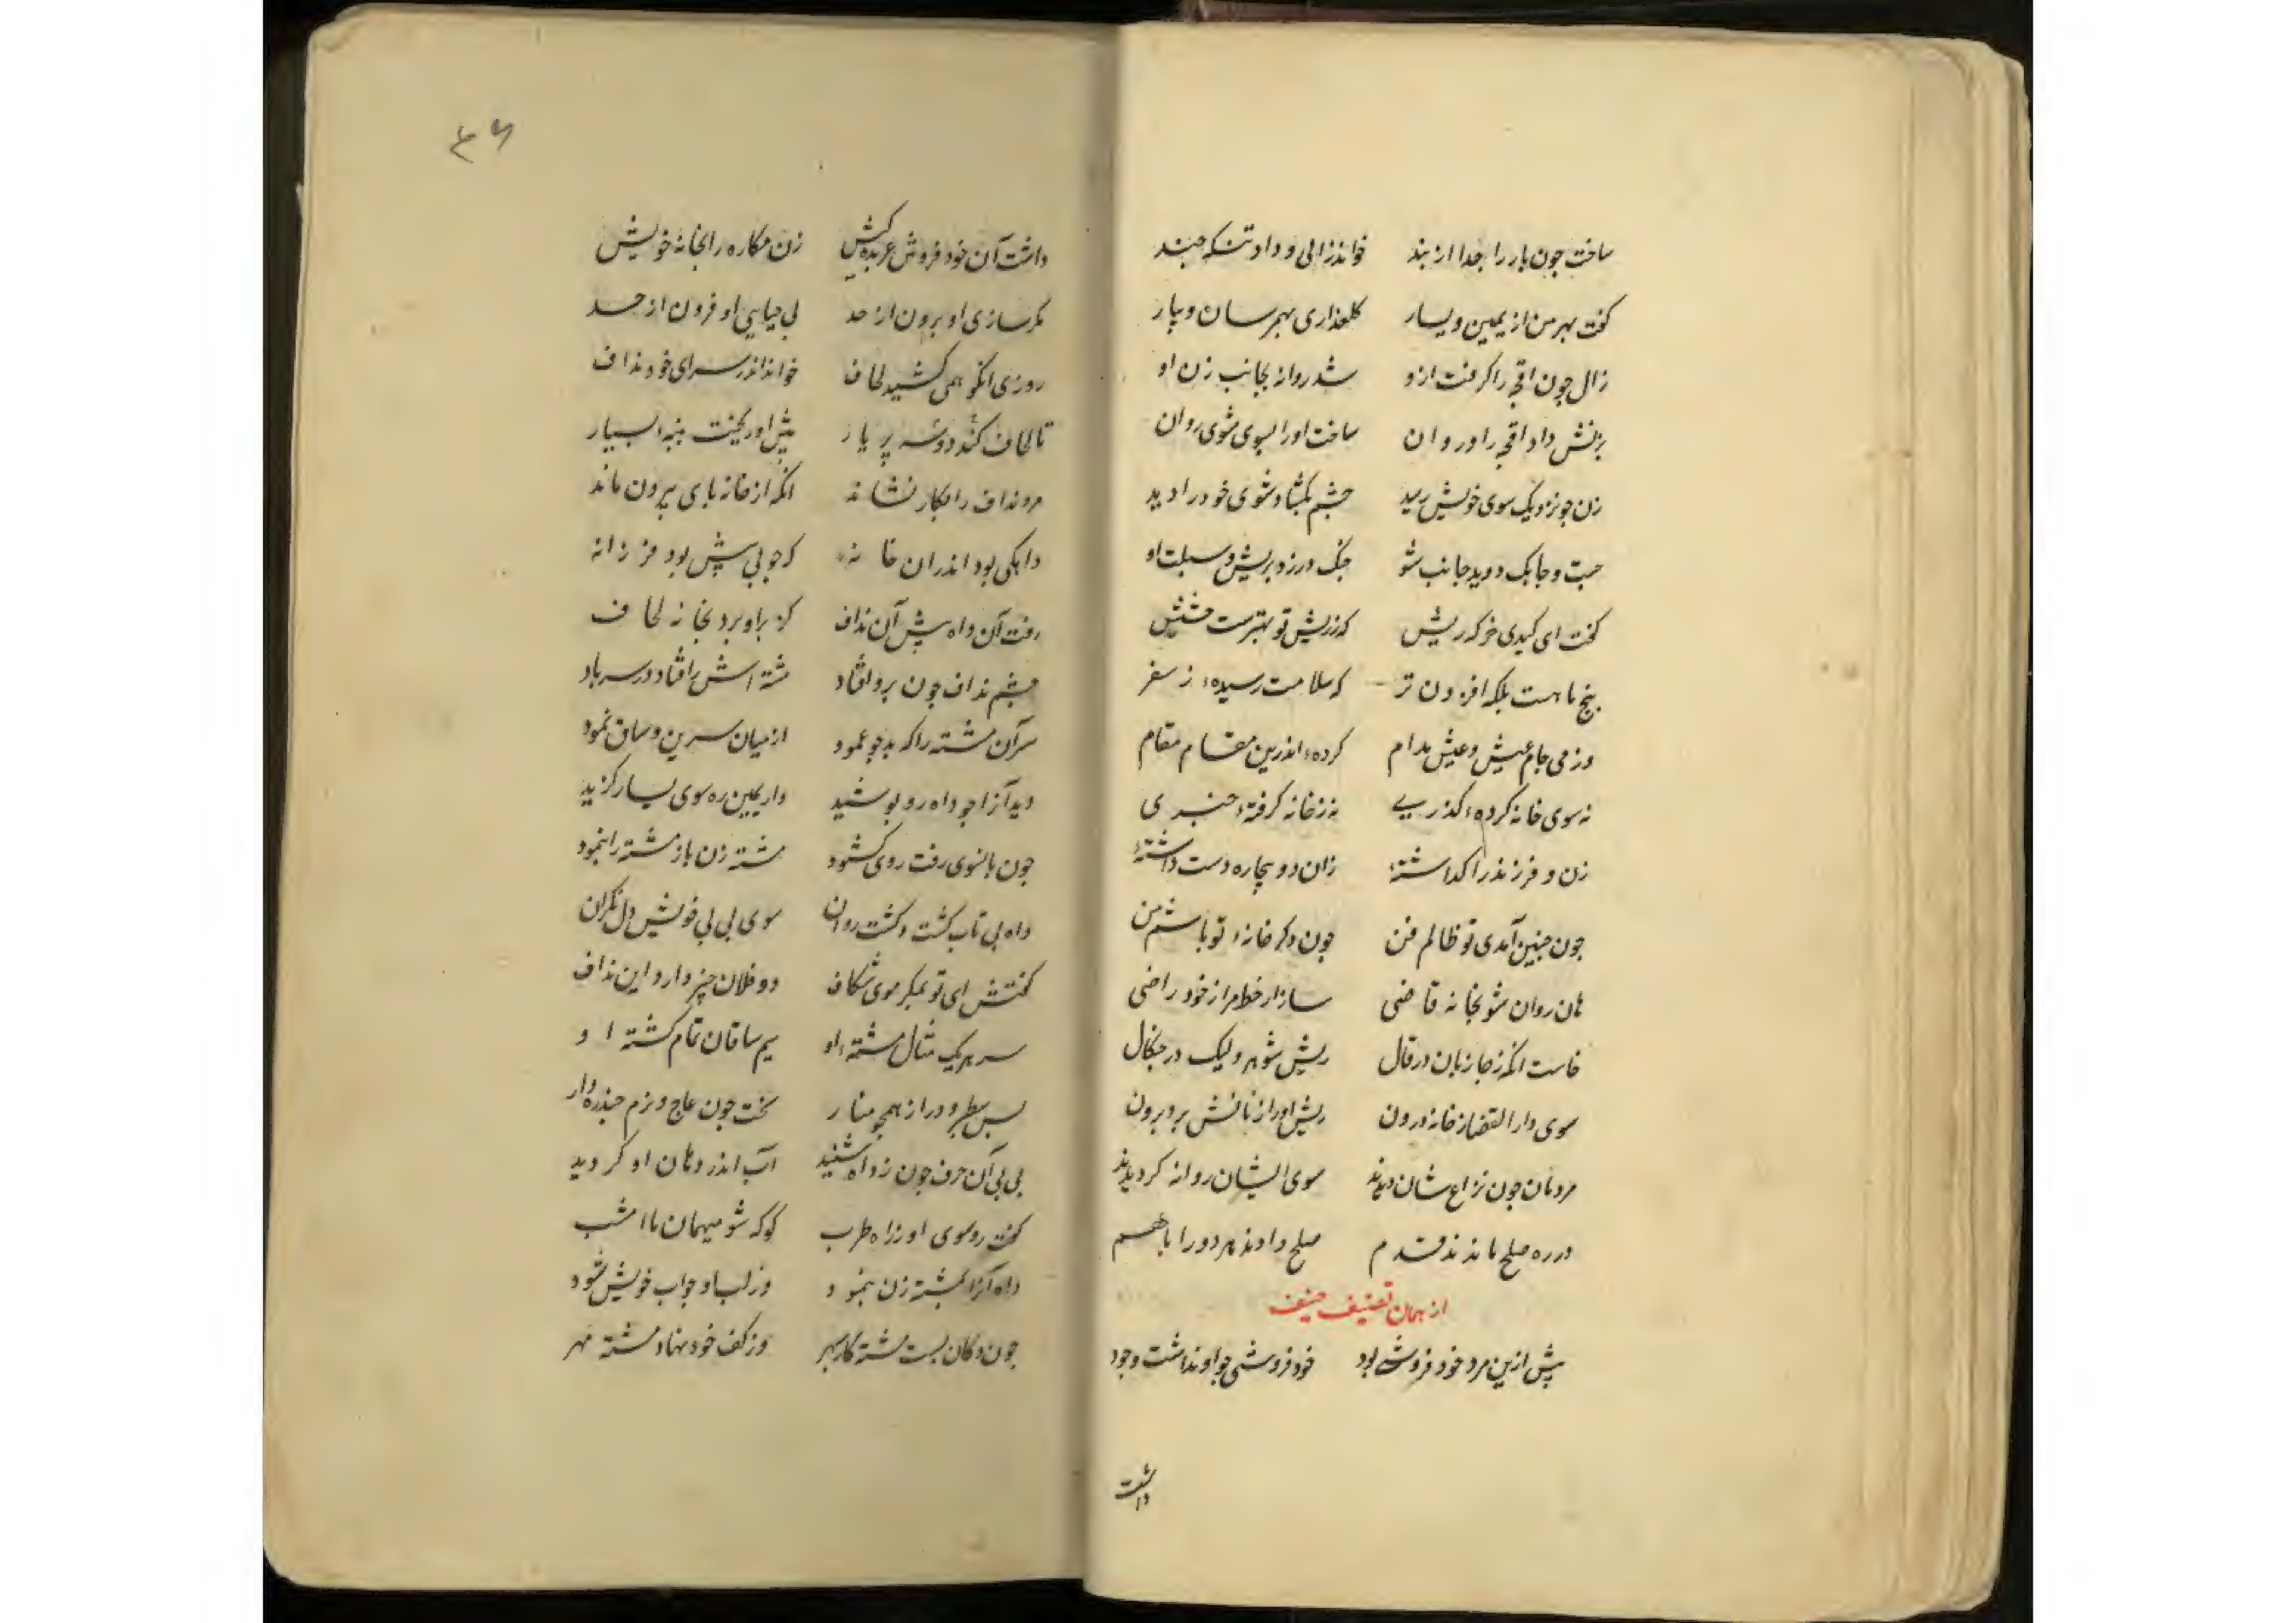 ساخت جون بار را جدا از بند خواند زالی و داد تنکه جند
کفت بهر من از یمین و یسار کلعذاری بهمرسان و بیار
زال چون اقچه را کرفت ازو شد روانه بجانب زن او
بزنش داد اقچه را و روان ساخت او را بسوی شوی روان
زن جو نزدیک سوی خویش رسید جشم بکشاد شوی خود را دید
جست و جابک دوید جانب شو جنک در زد بریش و سبلت او
کفت ای کیدی خر که ریش که ز ریش تو بهترست
پنج ماهست بلکه افزون تر که سلامت رسیدهٔ ز سفر
وز می جام عیش و عیش مدام کردهٔ اندرین مقام مقام
نه سوی خانه کردهٔ کذری نه ز خانه کرفتهٔ خبری
زن و فرزند را کذاشتهٔ زان دو بیچاره دست داشتهٔ
جون جنین آمدی تو ظالم فن جون دکر خانهٔ تو باشم من
هان روان شو بخانه قاضی ساز از خط مرا ز خود راضی
خاست انکه ز جا زبان در قال ریش شوهر ولیک در جنکال
سوی دار القضا ز خانه درون ریش او را زنانش برد برون
مردمان جون نزاع شان دیدند سوی ایشان روانه کردیدند
در ره صلح ماندند قدم صلح دادند هر دو را باهم
از همان تصنیف حنیف
پیش ازین مرد خود فروشی بود خود فروشی جو او نداشت وجود
داشت
۴۶
داشت آن خود فروش عربده کیش زن مکاره را بخانه خویش
مکر سازی او برون از حد بی حیایی او فزون از حد
روزی انکو همی کشید لحاف خواند اندر سرای خود نداف
تا لحاف کند دوشه پر یار پیش او ریخت پنبه بسیار
مرد نداف را بکار نشاند انکه از خانه پای بیرون ماند
داهکی بود اندران خانه که جو بی بیش بود فرزانه
رفت آن داه پیش آن نداف کز بر او برد بخانه لحاف
جشم نداف جون برو افتاد مشته اش را فتاد در سر باد
سر آن مشته را که بد جو عمود از میان سرین و ساق نمود
دید آنرا جو داه رو پوشید وز یمین ره سوی یسار کزید
جون بانسوی رفت روی کشود مشته زن باز مشته را بنمود
داه بی تاب کشت و کشت روان سوی بی بی خویش دل نکران
کفتش ای تو بمکر موی شکاف دو فلان جیز دارد این نداف
سر هر یک مثال مشتهٔ او سیم ساقان تمام کشتهٔ او
بس سطبر و دراز همجو منار سخت جون عاج و نرم جندره دار
بی بی آن حرف جون ز داه شنید آب اندر دهان او کردید
کفت رو سوی او ز راه طرب کو که شو میهمان ما امشب
داه آنرا بمشته زن بنمود وز لب او جواب خویش شنود
جون دکان بست مشته کار سپهر وز کف خود نهاد مشته مهر